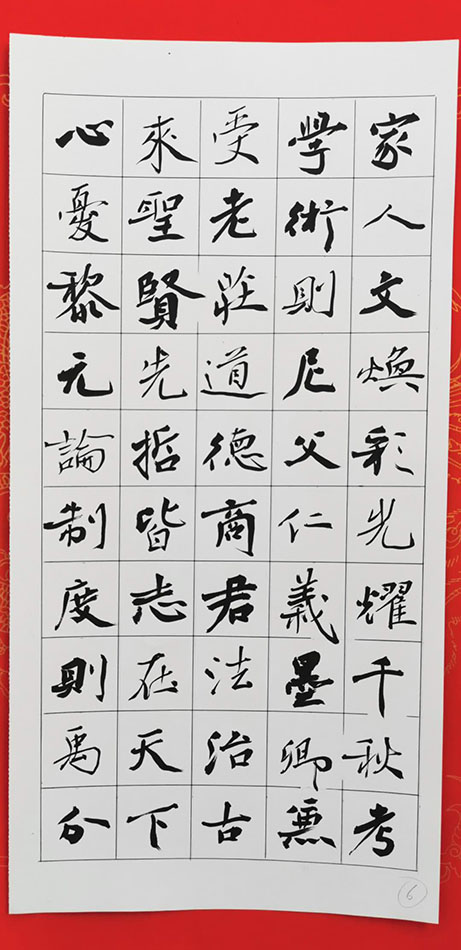 家人文煥彩光耀千秋考
學術則尼父仁義墨卿兼
愛老莊道德商君法治古
來聖賢先哲皆志在天下
心憂黎元論制度則禹分
6